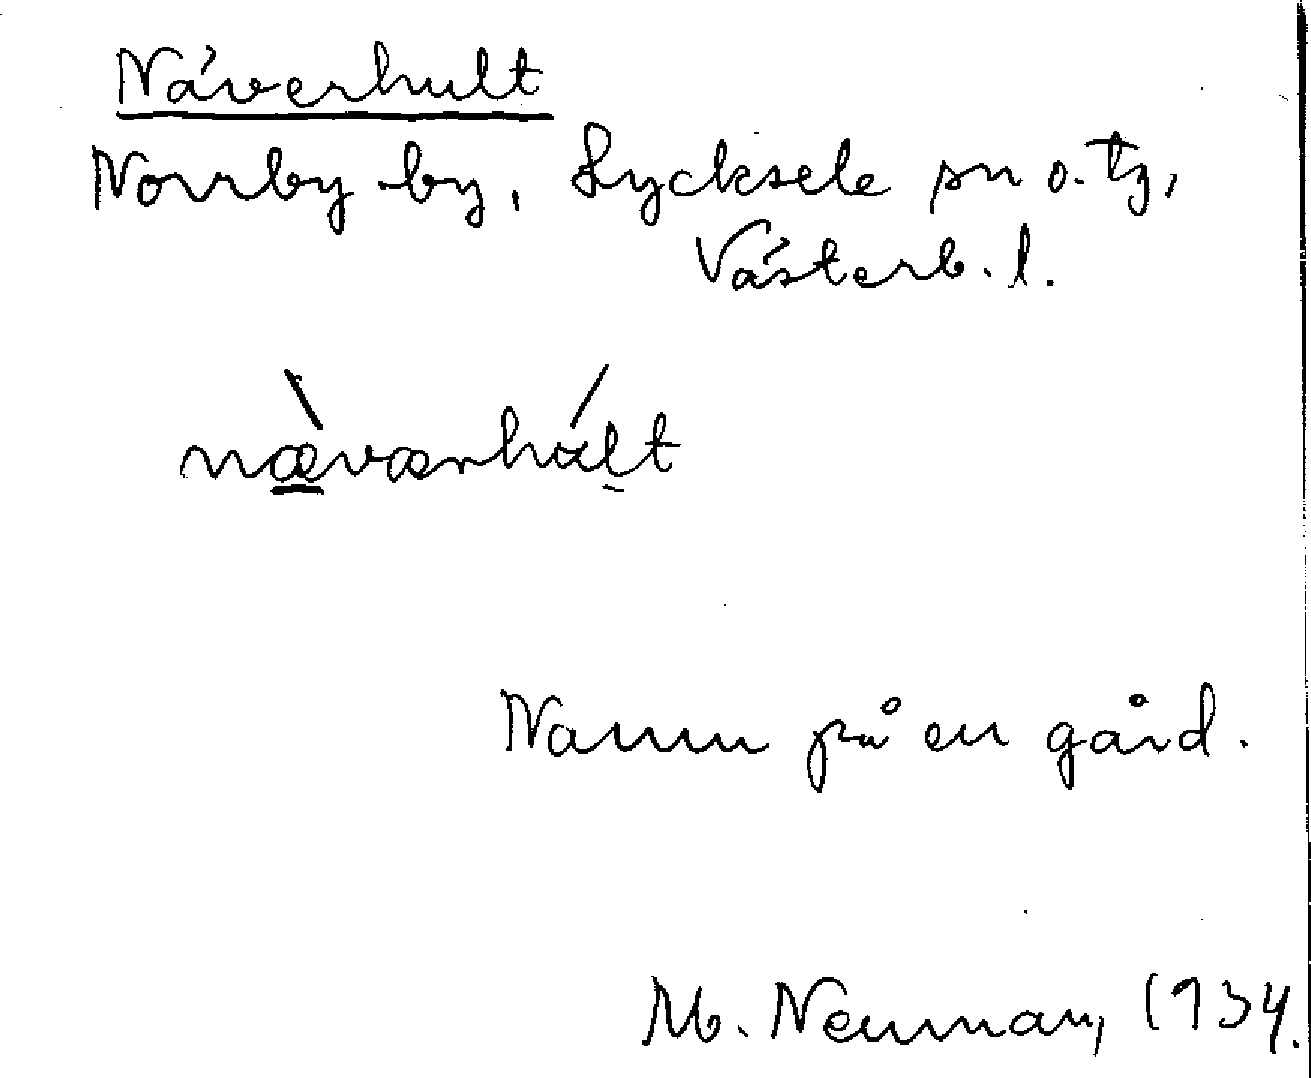 Näverhult
Norrby by, Lycksele sn o. tg,
Västerb. l.
næværhult
Namn på en gård.
M. Neuman, 1934.